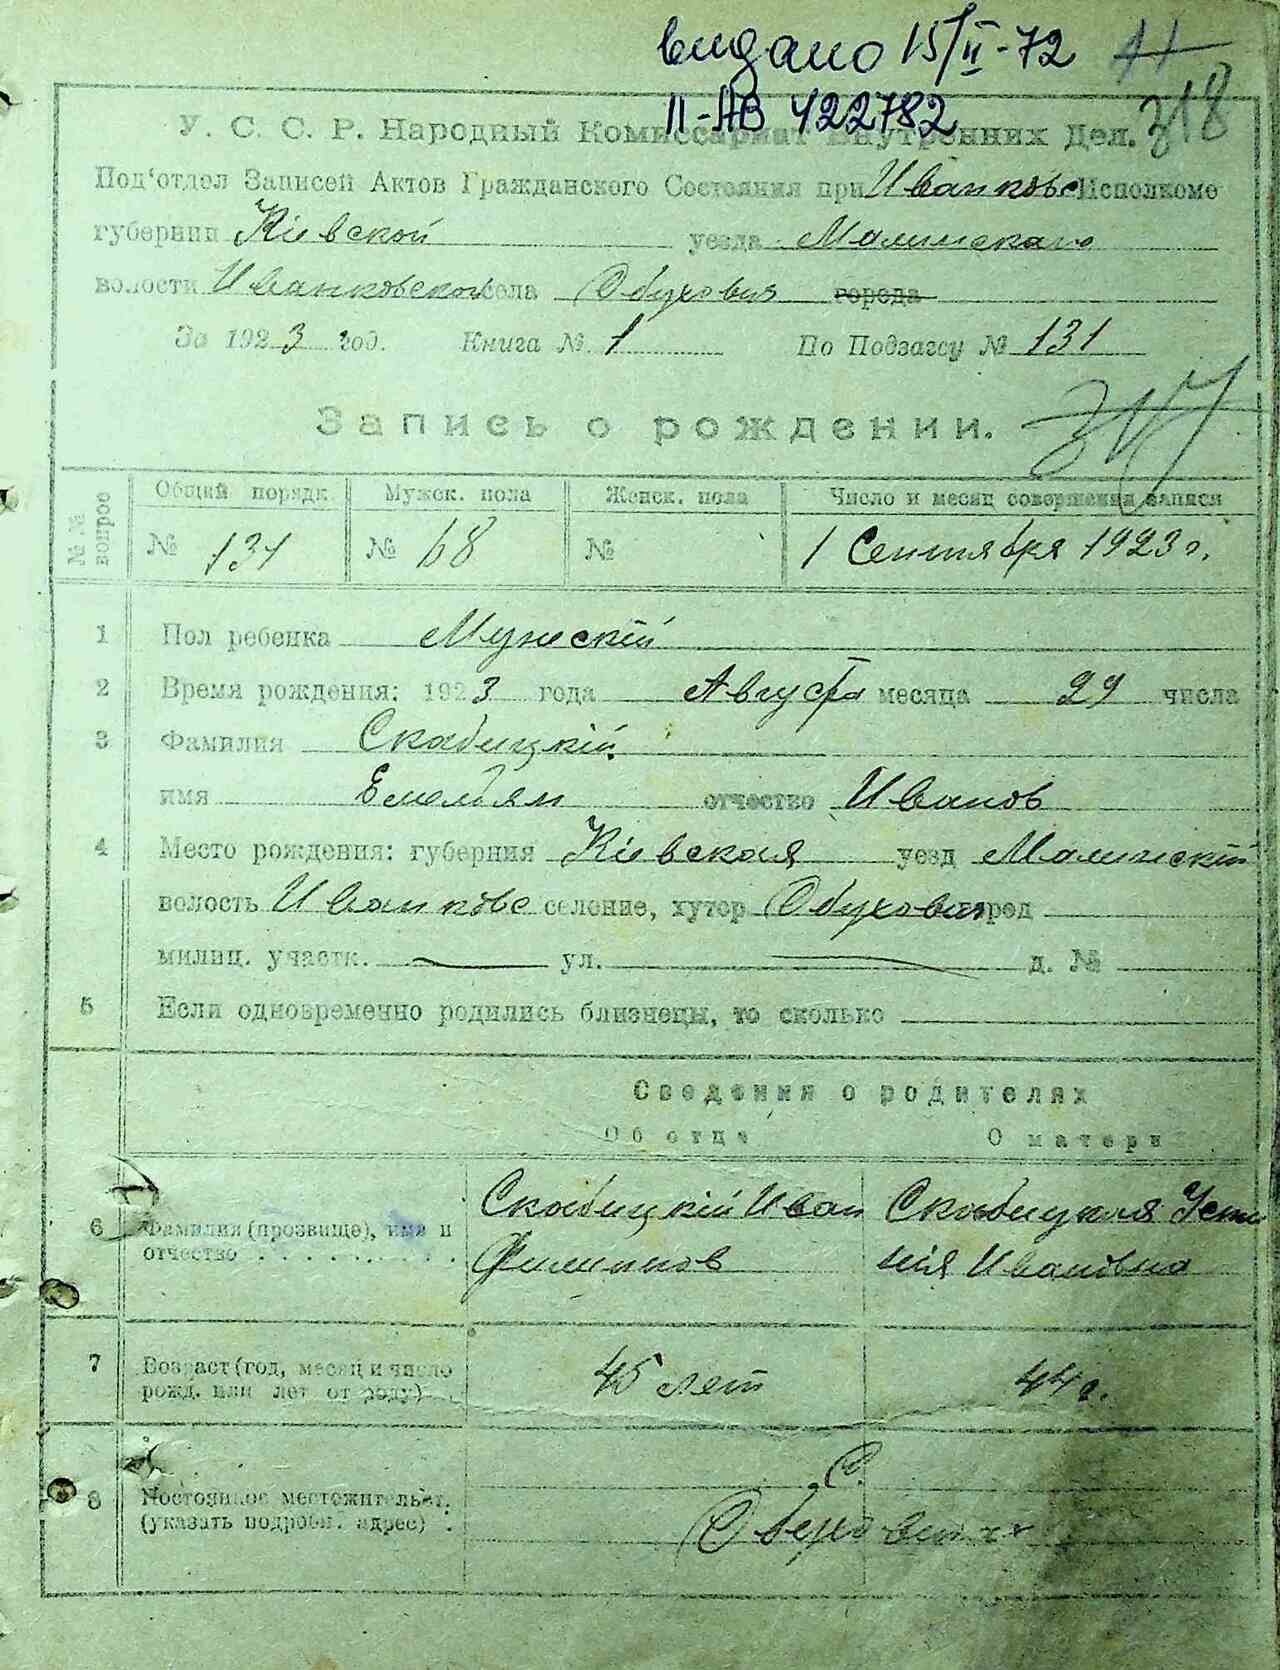 видано 15/II-72
II-АВ 422782
318
У. С. С. Р. Народный Комиссариат Внутренних Дел.
Под'отдел Записей Актов Гражданского Состояния при Иванковс Исполкоме
губернии Кіевской уезда Малинскаго
волости Иванковской села Обуховия города
За 1923 год. Книга № 1 По Подзагсу № 131
Запись о рождении.
№ № вопрос
Общий порядк. Мужск. пола Женск. пола Число и месяц совершения записи
№ 131 № 68 № 1 Сентября 1923 г.
1 Пол ребенка Мужскій
2 Время рождения: 1923 года Августа месяца 29 числа
3 Фамилия Скабицкій
имя Емельян отчество Иванов
4 Место рождения: губерния Кіевская уезд Малинскій
волость Иванковс селение, хутор Обуховия город
милиц. участк. ул. д. №
5 Если одновременно родились близнецы, то сколько
Сведения о родителях
Об отце О матери
6 Фамилия (прозвище), имя и отчество . . . . . . . . . .
Скабицкій Иван Филипов
Скабицкая Устинія Ивановна
7 Возраст (год, месяц и число рожд. или лет от роду) . .
45 лет 44 г.
8 Постоянное местожительст. (указать подробн. адрес) .
С.